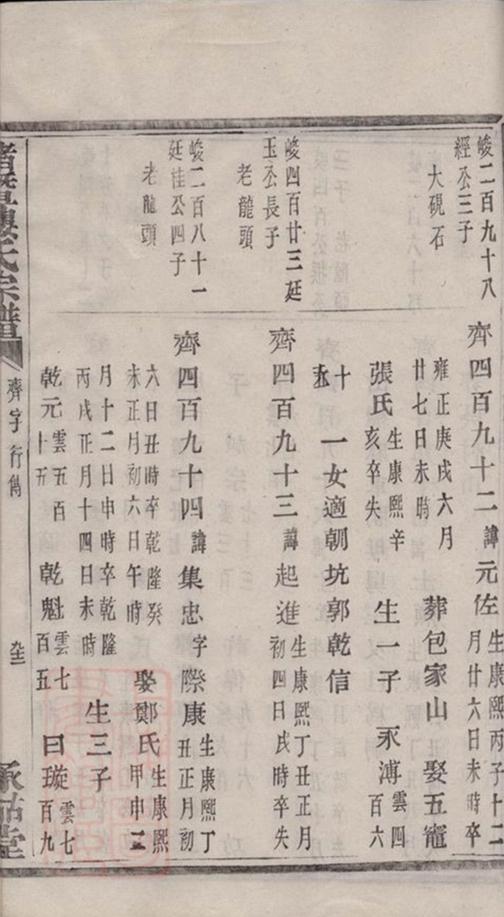 峻二百九十八
經公三子
大硯石
齊四百九十二諱元佐生康熙丙子十二
月廿六日未時卒
雍正庚戌六月
廿七日未時
葬包家山
娶五竈
張氏生康熙辛
亥卒失
生一子
永溥雲四
百六
十五
一女適朝坑郭乾信
峻四百廿三廷
玉公長子
老龍頭
齊四百九十三諱起進生康熙丁丑正月
初四日戌時卒失
峻二百八十一
廷佳公四子
老龍頭
齊四百九十四諱集忠字際康生康熙丁
丑正月初
六日丑時卒乾隆癸
未正月初六日午時
娶鄭氏生康熙
甲申二
月十二日申時卒乾隆
丙戌正月十四日未時
生三子
乾元雲五百
十五
乾魁雲七
百五
曰璇雲七
百九
諸暨樓氏宗譜
齊字行雋
承祜堂